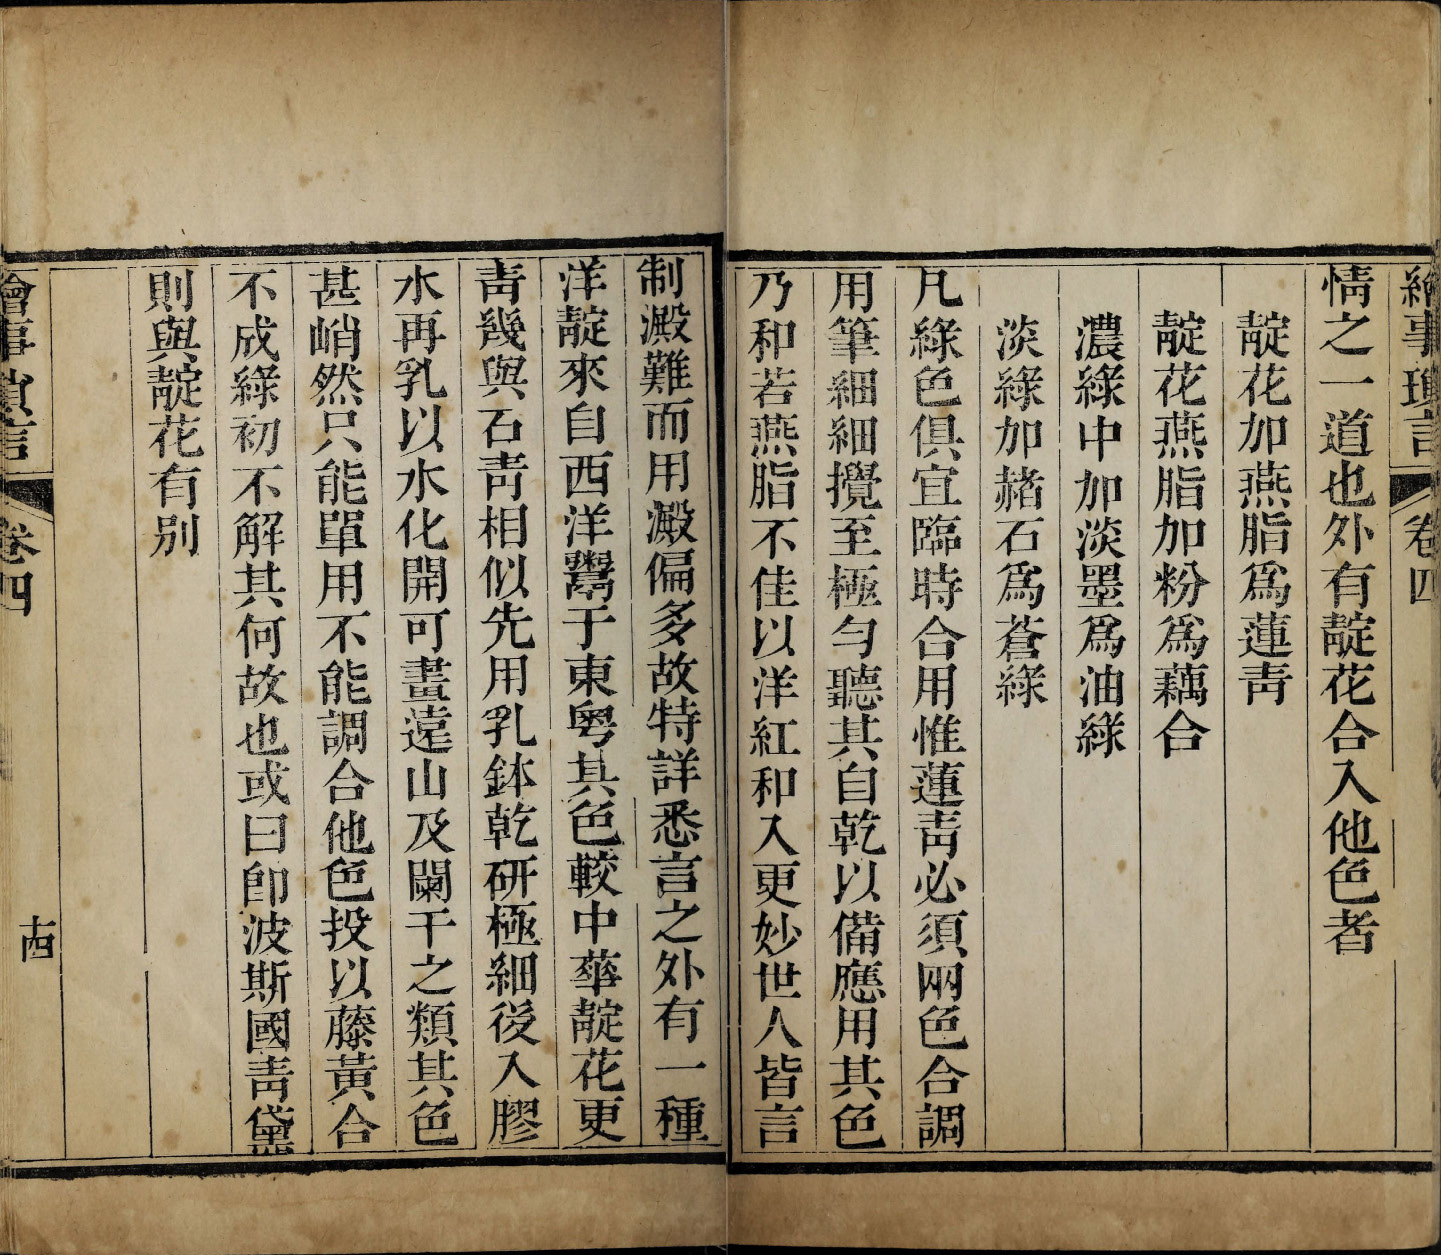 繪事瑣言 卷四
情之一道也外有靛花合入他色者
靛花加燕脂爲蓮靑
靛花燕脂加粉爲藕合
濃綠中加淡墨爲油綠
淡綠加赭石爲蒼綠
凡綠色俱宜臨時合用惟蓮靑必須兩色合調
用筆細細攪至極勻聽其自乾以備應用其色
乃和若燕脂不佳以洋紅和入更妙世人皆言
制澱難而用澱偏多故特詳悉言之外有一種
洋靛來自西洋鬻于東粵其色較中華靛花更
靑幾與石靑相似先用乳鉢乾硏極細後入膠
水再乳以水化開可畫遠山及闌干之類其色
甚峭然只能單用不能調合他色投以藤黃合
不成綠初不解其何故也或曰卽波斯國靑黛
則與靛花有别
繪事瑣言 卷四 十四